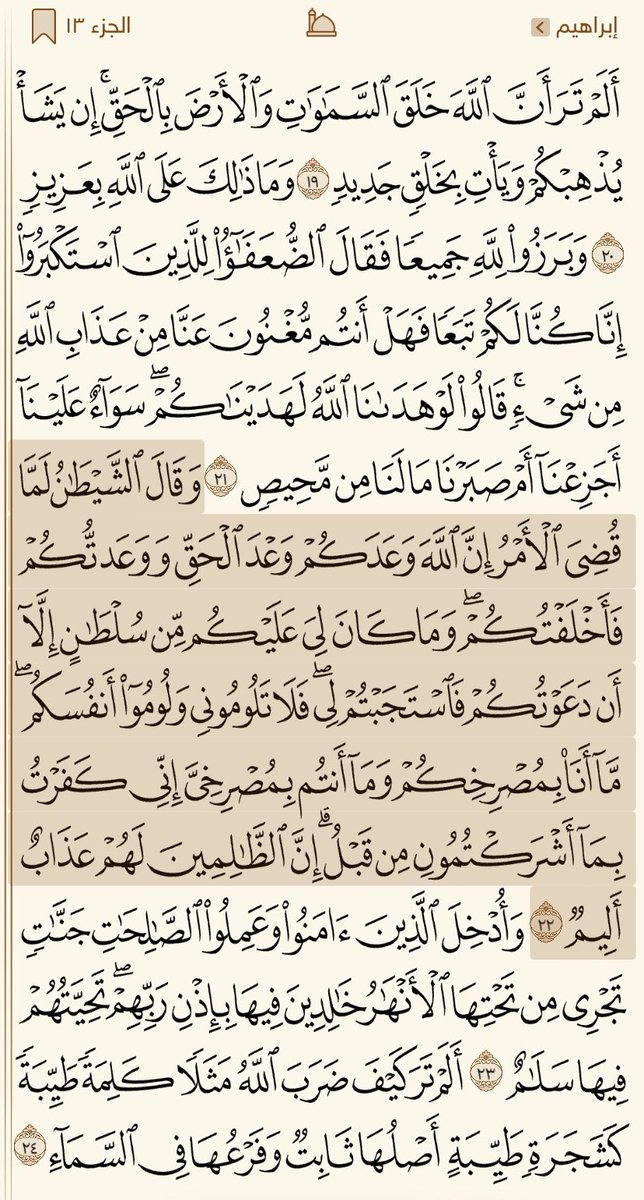 إبراهيم
الجزء ١٣
أَلَمْ تَرَ أَنَّ ٱللَّهَ خَلَقَ ٱلسَّمَٰوَٰتِ وَٱلْأَرْضَ بِٱلْحَقِّ ۚ إِن يَشَأْ
يُذْهِبْكُمْ وَيَأْتِ بِخَلْقٍ جَدِيدٍ ١٩ وَمَا ذَٰلِكَ عَلَى ٱللَّهِ بِعَزِيزٍ
٢٠ وَبَرَزُوا۟ لِلَّهِ جَمِيعًا فَقَالَ ٱلضُّعَفَٰٓؤُا۟ لِلَّذِينَ ٱسْتَكْبَرُوٓا۟
إِنَّا كُنَّا لَكُمْ تَبَعًا فَهَلْ أَنتُم مُّغْنُونَ عَنَّا مِنْ عَذَابِ ٱللَّهِ
مِن شَىْءٍ ۚ قَالُوا۟ لَوْ هَدَىٰنَا ٱللَّهُ لَهَدَيْنَٰكُمْ ۖ سَوَآءٌ عَلَيْنَآ
أَجَزِعْنَآ أَمْ صَبَرْنَا مَا لَنَا مِن مَّحِيصٍ ٢١ وَقَالَ ٱلشَّيْطَٰنُ لَمَّا
قُضِىَ ٱلْأَمْرُ إِنَّ ٱللَّهَ وَعَدَكُمْ وَعْدَ ٱلْحَقِّ وَوَعَدتُّكُمْ
فَأَخْلَفْتُكُمْ ۖ وَمَا كَانَ لِىَ عَلَيْكُم مِّن سُلْطَٰنٍ إِلَّآ
أَن دَعَوْتُكُمْ فَٱسْتَجَبْتُمْ لِى ۖ فَلَا تَلُومُونِى وَلُومُوٓا۟ أَنفُسَكُم ۖ
مَّآ أَنَا۠ بِمُصْرِخِكُمْ وَمَآ أَنتُم بِمُصْرِخِىَّ إِنِّى كَفَرْتُ
بِمَآ أَشْرَكْتُمُونِ مِن قَبْلُ ۗ إِنَّ ٱلظَّٰلِمِينَ لَهُمْ عَذَابٌ
أَلِيمٌ ٢٢ وَأُدْخِلَ ٱلَّذِينَ ءَامَنُوا۟ وَعَمِلُوا۟ ٱلصَّٰلِحَٰتِ جَنَّٰتٍ
تَجْرِى مِن تَحْتِهَا ٱلْأَنْهَٰرُ خَٰلِدِينَ فِيهَا بِإِذْنِ رَبِّهِمْ ۖ تَحِيَّتُهُمْ
فِيهَا سَلَٰمٌ ٢٣ أَلَمْ تَرَ كَيْفَ ضَرَبَ ٱللَّهُ مَثَلًا كَلِمَةً طَيِّبَةً
كَشَجَرَةٍ طَيِّبَةٍ أَصْلُهَا ثَابِتٌ وَفَرْعُهَا فِى ٱلسَّمَآءِ ٢٤